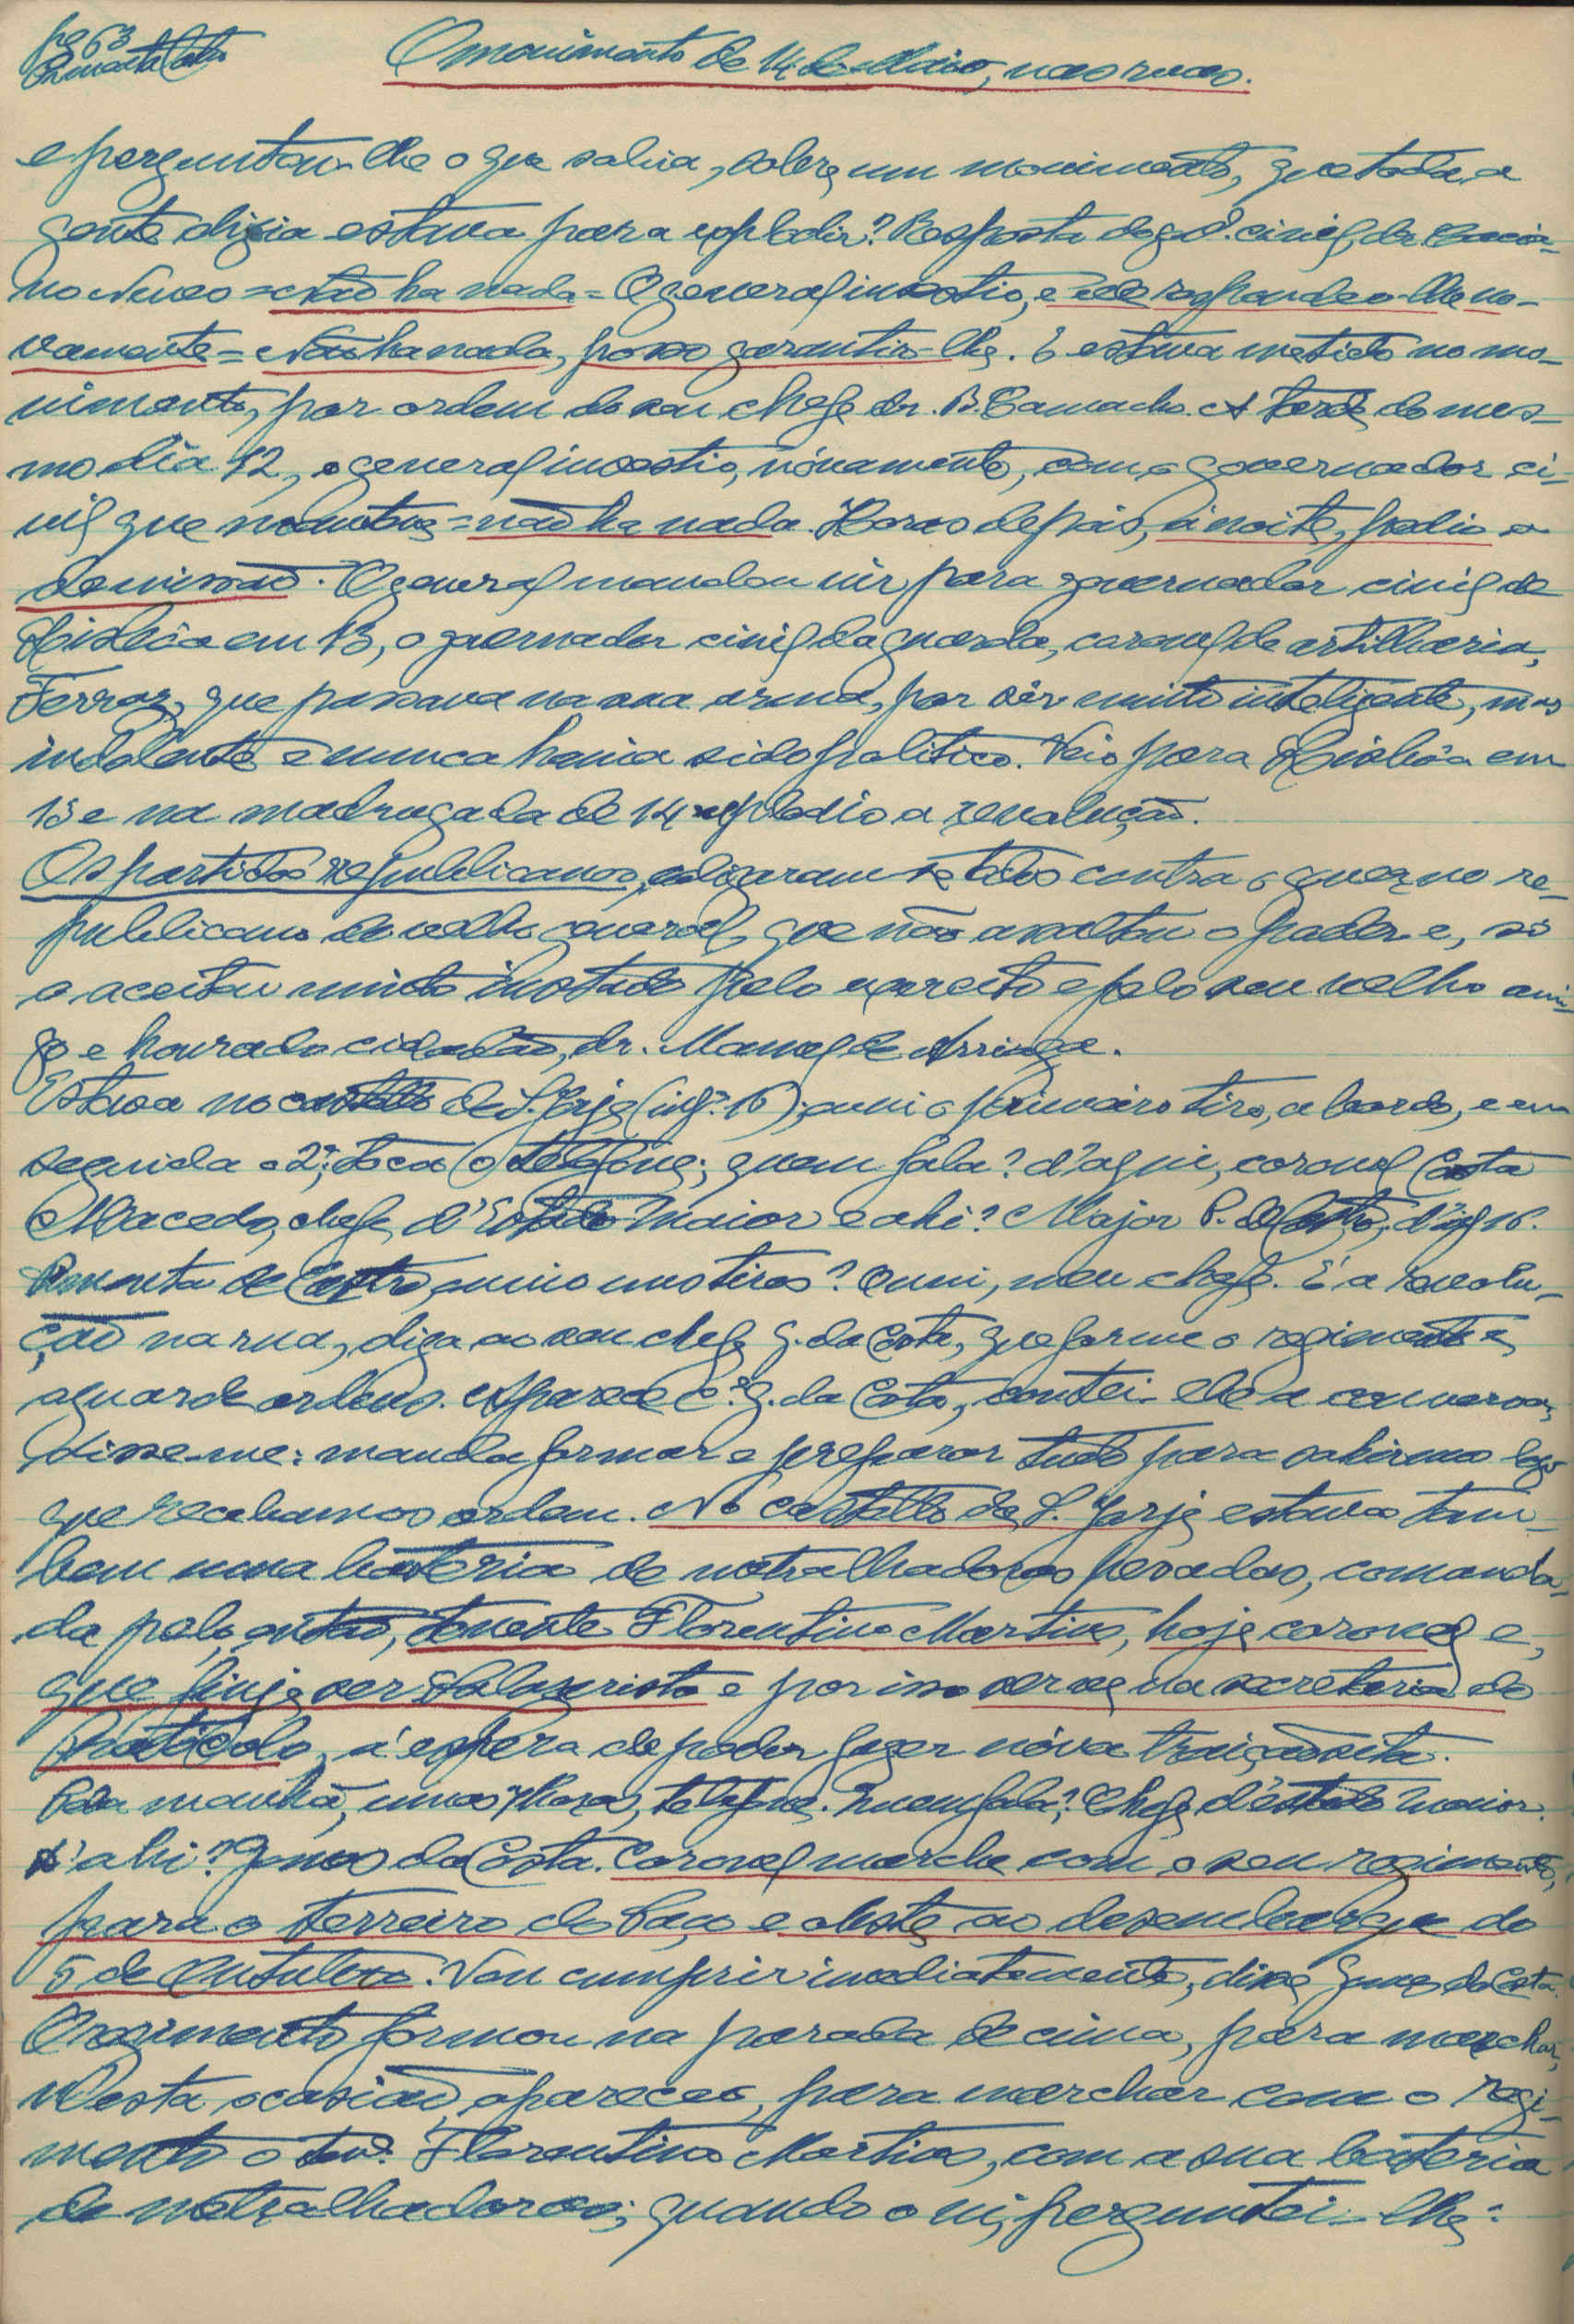 pg 63
O movimento de 14 de Maio, nas ruas.
e perguntou-lhe o que sabia, sobre um movimento, que toda a
gente dizia estava para explodir? Resposta do g.dr civil, dr.
Neves = Não ha nada = O general insistio, e ele respondeo-lhe no-
vamente = Não ha nada, posso garantir-lhe. E estava metido no mo-
vimento, por ordem do seu chefe dr. B. Camacho. A tarde do mes-
mo dia 12, o general insistio, nóvamente, com o governador ci-
vil que manteve = não ha nada. Horas depois, á noite, pedio a
demissão. O general mandou vir para governador civil de
Lisbôa em 13, o governador civil da guarda, coronel de artilharia,
Ferraz, que passava na sua arma, por sêr muito inteligente, mas
indolente e nunca havia sido politico. Veio para Lisbôa em
13 e na madrugada de 14 explodio a revolução.
Os partidos republicanos, coligaram-se todos contra o governo re-
publicano do velho general, que não assaltou o poder e, só
o aceitou muito instado pelo exercito e pelo seu velho ami-
go e honrado cidadão, dr. Manoel de Arriaga.
Estava no castello de S. Jorje (inf.ª 16); ouvi o primeiro tiro, a bordo, e em
seguida o 2º; tocou o telefone; quem fala? d'aqui, coronel Costa
Macedo, chefe d'Estado Maior e ahi? Major P. de Castro, d'inf 16.
Pimenta de Castro, ouvio uns tiros? Ouvi, meu chefe. É a revolu-
ção na rua, diga ao seu chefe G. da Costa, que forme o regimento e
aguarde ordens. Aparece o C.el G. da Costa, contei-lhe a conversa,
disse-me: manda formar e preparar tudo para sahirmos logo
que recebamos ordem. No castello de S. Jorje estava tam-
bem uma bateria de metralhadoras pesadas, comanda-
da pelo, então, tenente Florentino Martins, hoje coronel e,
que finje ser Salazarista e por isso serve na secretaria do
, á espera de poder fazer nóva traiçãosita.
Pela manhã, umas horas, telefone. Quem fala? Chefe d'estado Maior.
D'ahi? Gomes da Costa. Coronel marche com o seu regimento,
para o terreiro do Paço e obste ao desembarque do
5 de Outubro. Vou cumprir imediatamente, disse Gomes da Costa.
O regimento formou na parada de cima, para marchar,
Nesta ocasião, apareceo, para marchar com o regi-
mento o ten.te Florentino Martins, com a sua bateria
de metralhadoras; quando o vi, perguntei-lhe: